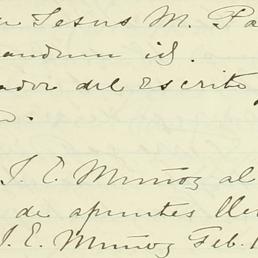 Jesus M. Pa
andum id.
ador del escrito
J. E. Muñoz al
de apuntes lle
J. E. Muñoz Feb. 1